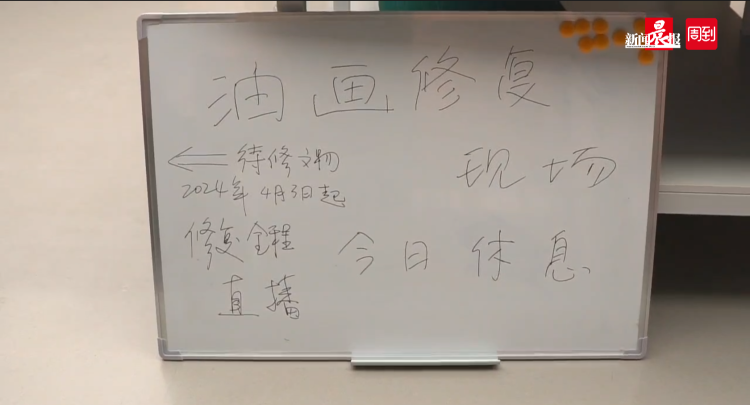 新闻晨报 周到
油画修复
现场
待修文物
2024年 4月3日起
修复全程
直播
今日休息